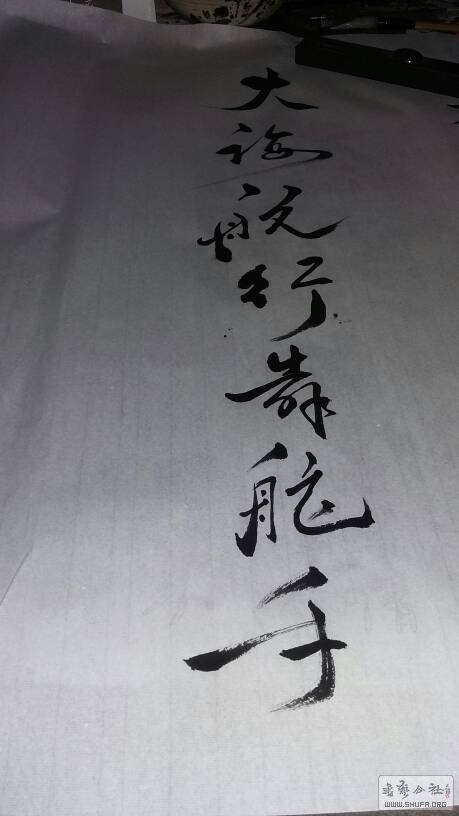 大海航行靠舵手
書藝公社
WWW.SHUFA.ORG